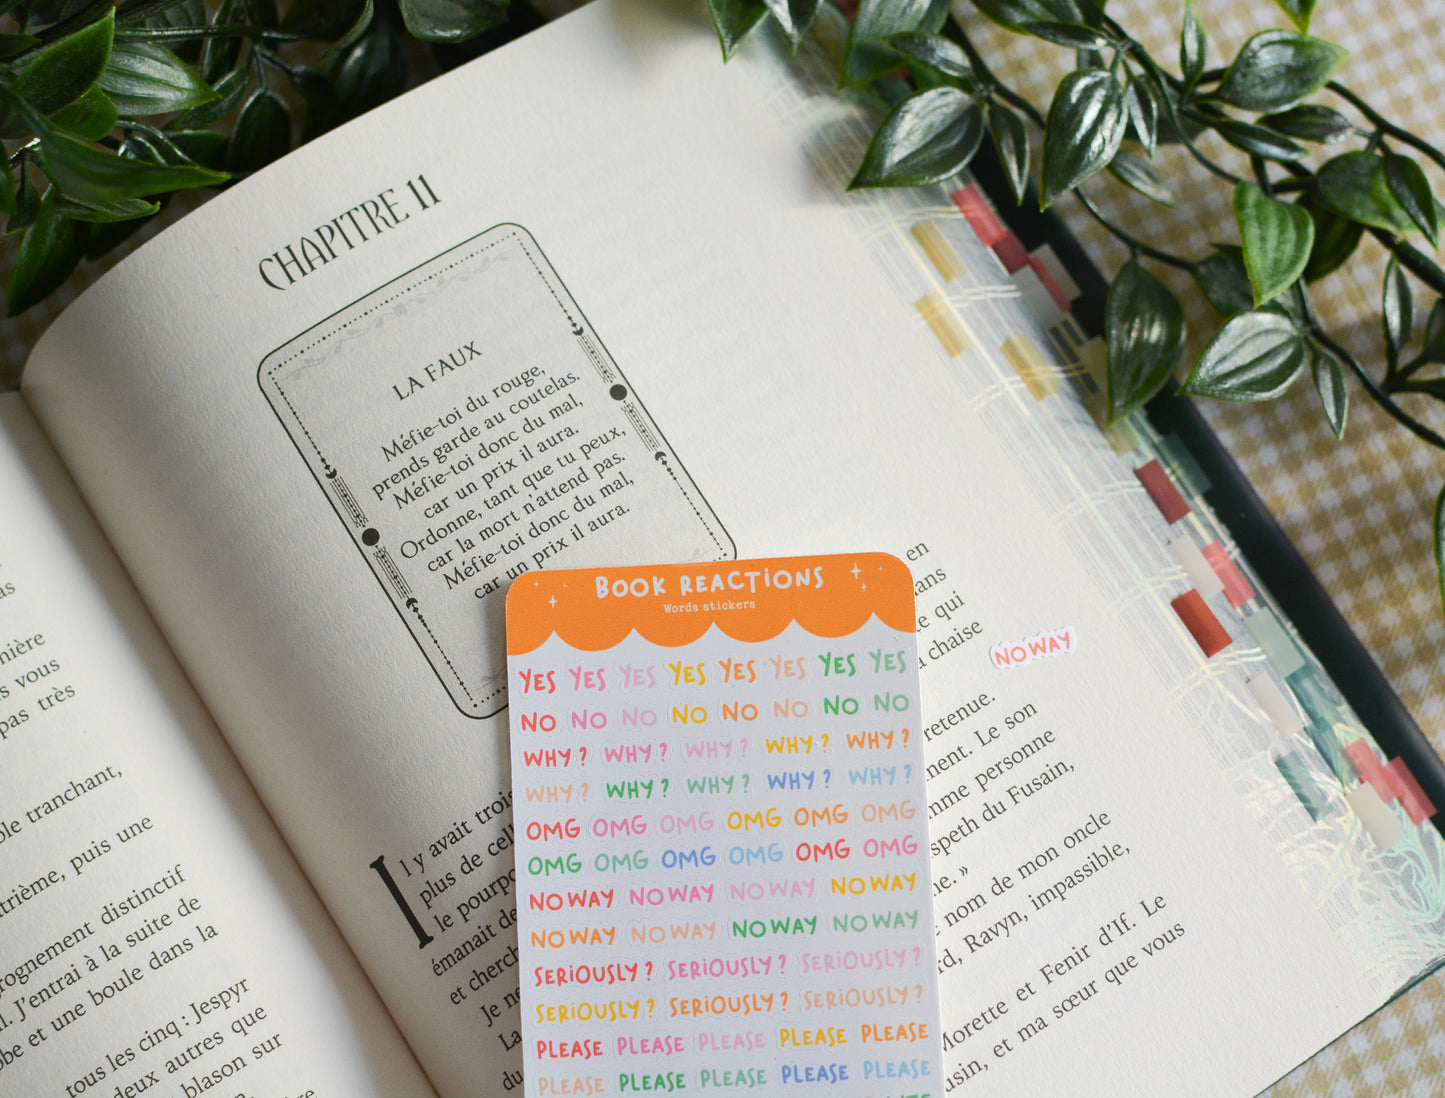 as
nière
s vous
pas très
ble tranchant,
trième, puis une
rognement distinctif
l. J'entrai à la suite de
be et une boule dans la
tous les cinq : Jespyr
deux autres que
blason sur
CHAPITRE 11
LA FAUX
Méfie-toi du rouge,
prends garde au coutelas.
Méfie-toi donc du mal,
car un prix il aura.
Ordonne, tant que tu peux,
car la mort n'attend pas.
Méfie-toi donc du mal,
car un prix il aura.
Il y avait trois
plus de cell
le pourpo
émanait de
et cherch
Je ne
La
du
en
dans
ce qui
a chaise
retenue.
ment. Le son
mme personne
speth du Fusain,
ne. »
e nom de mon oncle
rd, Ravyn, impassible,
Morette et Fenir d'If. Le
usin, et ma sœur que vous
NO WAY
BOOK REACTIONS
Words stickers
YES YES YES YES YES YES YES YES
NO NO NO NO NO NO NO NO
WHY ? WHY ? WHY ? WHY ? WHY ?
WHY ? WHY ? WHY ? WHY ? WHY ?
OMG OMG OMG OMG OMG OMG
OMG OMG OMG OMG OMG OMG
NO WAY NO WAY NO WAY NO WAY
NO WAY NO WAY NO WAY NO WAY
SERIOUSLY ? SERIOUSLY ? SERIOUSLY ?
SERIOUSLY ? SERIOUSLY ? SERIOUSLY ?
PLEASE PLEASE PLEASE PLEASE PLEASE
PLEASE PLEASE PLEASE PLEASE PLEASE